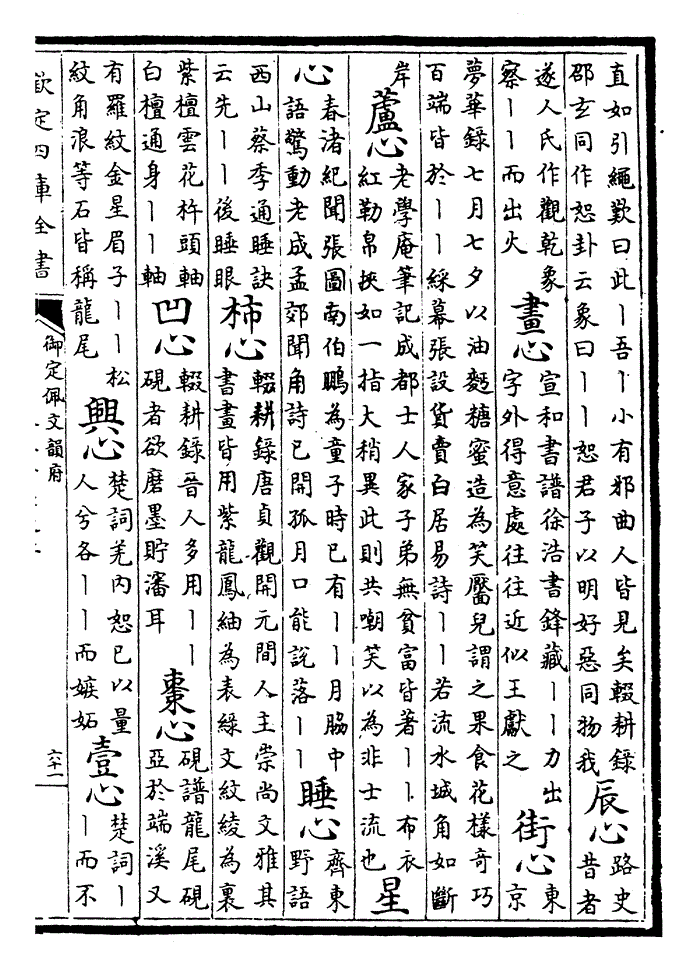 直如引繩歎曰此丨吾丨小有邪曲人皆見矣輟耕録
邵玄同作恕卦云象曰丨丨恕君子以明好惡同物我
辰心
路史
昔者
遂人氏作觀乾象
察丨丨而出火
畫心
宣和書譜徐浩書鋒藏丨丨力出
字外得意處往往近似王獻之
街心
東
京
夢華録七月七夕以油麪糖蜜造為笑靨兒謂之果食花様竒巧
百端皆於丨丨綵幕張設貨賣白居易詩丨丨若流水城角如斷
岸
蘆心
老學庵筆記成都士人家子弟無貧富皆著丨丨布衣
紅勒帛挾如一指大稍異此則共嘲笑以為非士流也
星
心
春渚紀聞張圖南伯鵬為童子時已有丨丨月脇中
語驚動老成孟郊聞角詩已開孤月口能說落丨丨
睡心
齊東
野語
西山蔡季通睡訣
云先丨丨後睡眼
柿心
輟耕録唐貞觀開元間人主崇尚文雅其
書畫皆用紫龍鳳紬為表緑文紋綾為裏
紫檀雲花杵頭軸
白檀通身丨丨軸
凹心
輟耕録晉人多用丨丨
硯者欲磨墨貯瀋耳
棗心
硯譜龍尾硯
亞於端溪又
有羅紋金星眉子丨丨松
紋角浪等石皆稱龍尾
興心
楚詞羌内恕已以量
人兮各丨丨而嫉妬
壹心
楚詞丨
丨而不
欽定四庫全書
御定佩文韻府
六十一